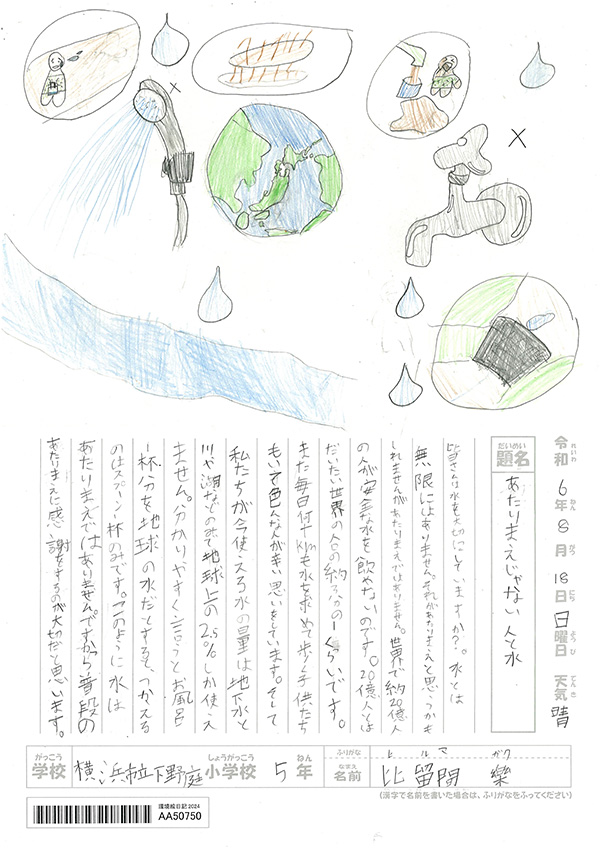 25℃
×
×
令和6年8月18日日曜日 天気 晴
れいわ ねん がつ にち ようび てんき
だいめい
題名 あたりまえじゃない人と水
皆さんは水を大切にしていますか?。水とは
無限にはありません。それがあたりまえと思うかも
しれませんがあたりまえではありません。世界で約20億人
の人が安全な水を飲めないのです。20億人とは
だいたい世界の人口の約 の1くらいです。
また毎日何十kmも水を求めて歩く子供たち
もいて色んな人が辛い思いをしています。そして
私たちが今使える水の量は地下水と
川や湖などのみで地球上の2.5%しか使え
ません。分かりやすく言うとお風呂
一杯分を地球の水だとすると、つかえる
のはスプーン一杯のみです。このように水は
あたりまえではありません。ですから普段の
あたりまえに感謝をするのが大切だと思います。
がっこう しょうがっこう ねん ふりがな ヒルマ ガク
学校 横浜市立下野庭小学校 5年 なまえ 名前 比留間 樂
(漢字で名前を書いた場合は、ふりがなをふってください)
環境絵日記2024
AA50750